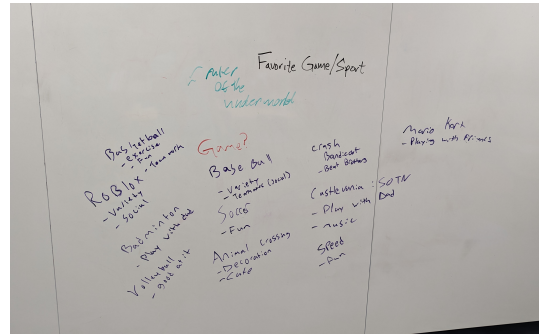 Favorite Game/Sport
ruler
of the
underworld
Basketball
- exercise
- Fun
- Teamwork
RoBlox
- Variety
- Social
Badminton
- Play with dad
Volleyball
- good at it
Game?
Base Ball
- Variety
- Teamwork (social)
Soccer
- Fun
Animal Crossing
- Decoration
- Cute
Crash
Bandicoot
- Beat Brothers
Castlevania: SOTN
- Play with Dad
- music
Speed
- Fun
Mario Kart
- Playing with Friends